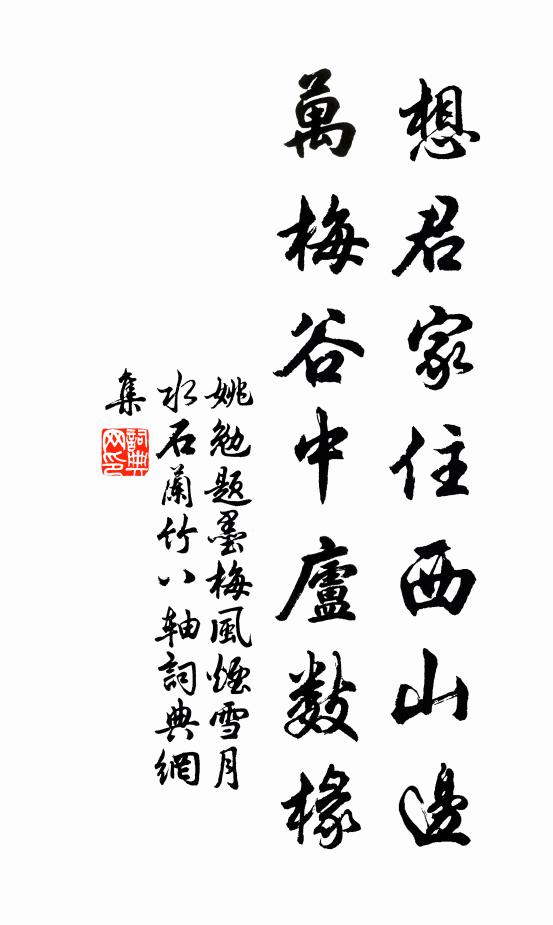 想君家住西山邊
萬梅谷中廬数椽
姚勉題墨梅風煙雪月
水石蘭竹八軸詞典網
集
詞典
网印